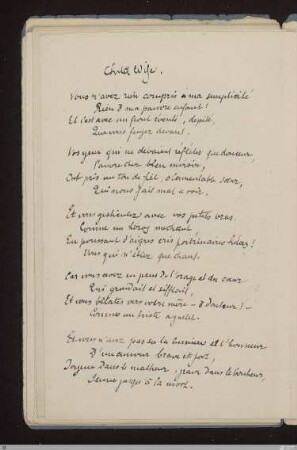 Child Wife.
Vous n'avez rien compris à ma simplicité
Rien ô ma pauvre enfant !
Et c'est avec un front éventé, dépité,
Que vous fuyez devant.
Vos yeux qui ne devaient refléter que douceur,
Pauvre cher bleu miroir,
Ont pris un ton de fiel, ô lamentable sœur,
Qui nous fait mal à voir.
Et vous gesticulez avec vos petits bras
Comme un héros méchant
En poussant d'aigres cris poitrinaires hélas !
Vous qui n'étiez que chant.
Car vous avez eu peur de l'orage et du cœur
Qui grondait et sifflait,
Et vous bêlâtes vers votre mère - ô douleur ! -
Comme un triste agnelet.
Et vous n'avez pas su la lumière et l'honneur
D'un amour brave et fort,
Joyeux dans le malheur, grave dans le bonheur,
Jeune jusqu'à la mort.